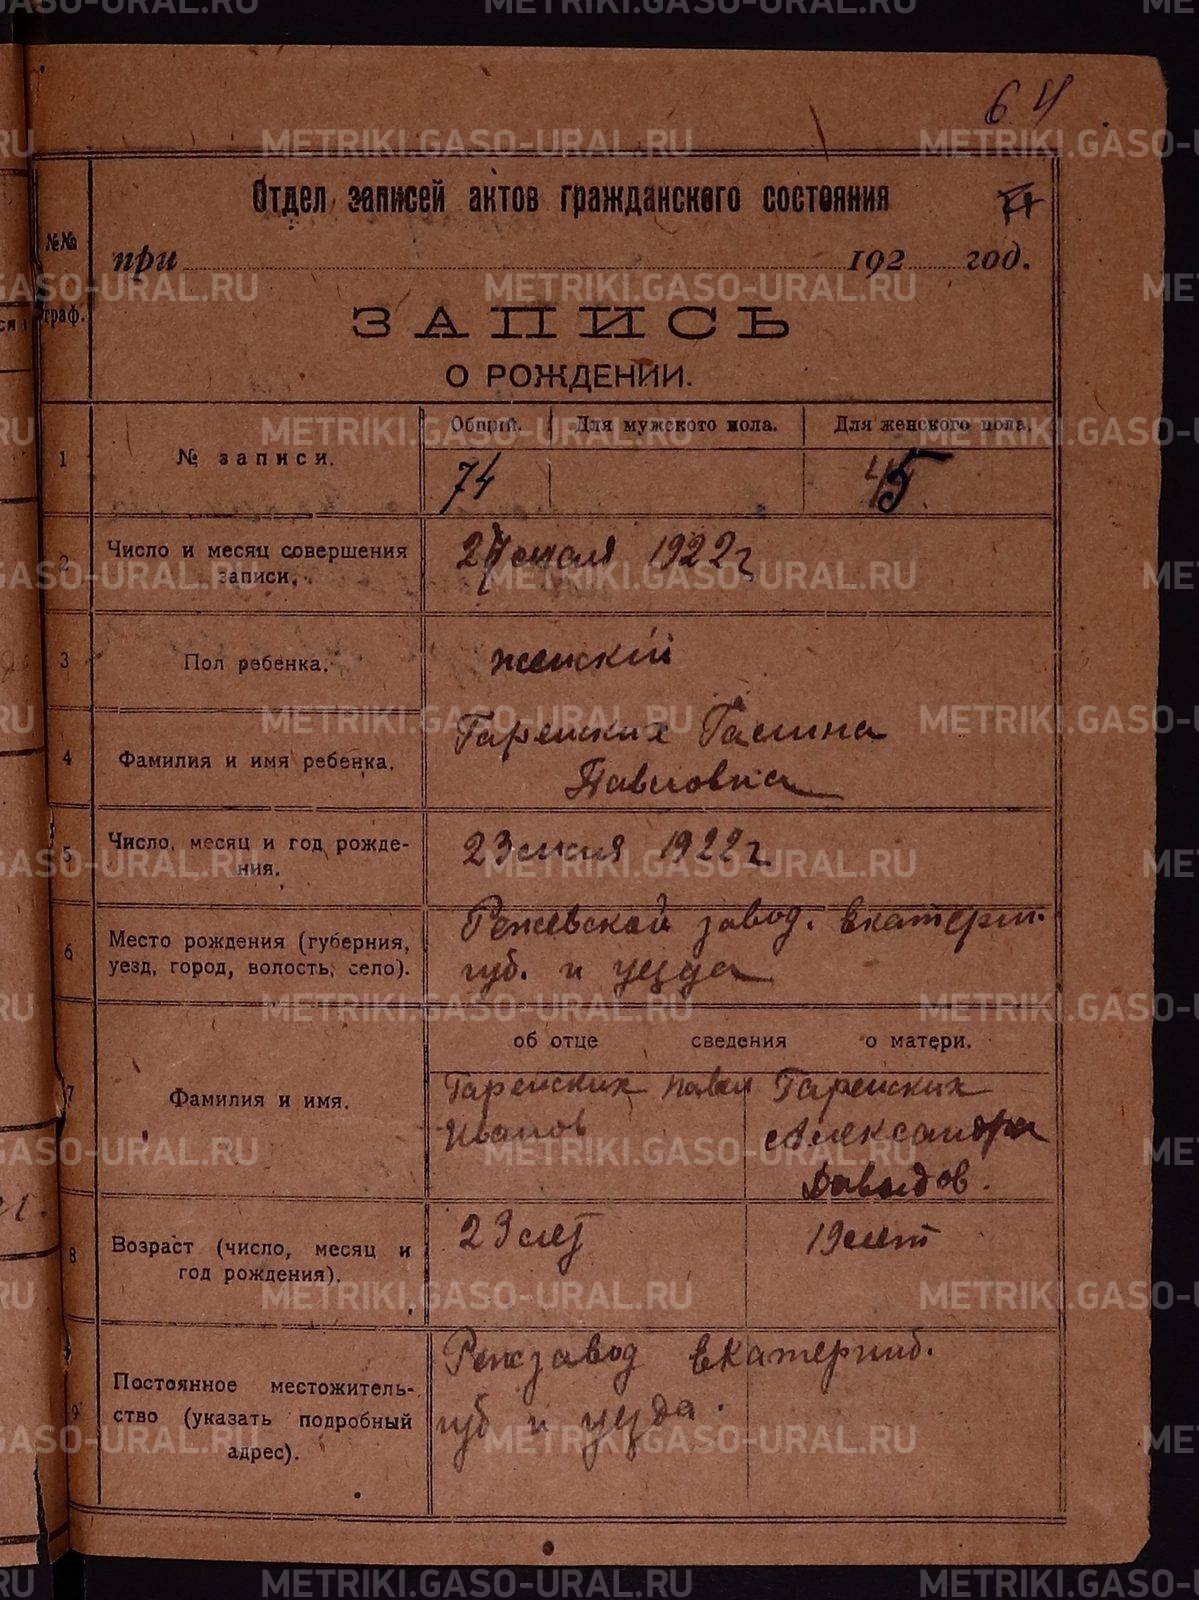 64
Отдел записей актов гражданского состояния
№№ граф.
при 192 год.
ЗАПИСЬ
О РОЖДЕНИИ.
1
№ записи.
Общий. Для мужского пола. Для женского пола.
74 45
2
Число и месяц совершения
записи.
1922 г
3
Пол ребенка.
женскій
4
Фамилия и имя ребенка.
Гаренских Галина
Павловна
5
Число, месяц и год рожде-
ния.
23 1922 г
6
Место рождения (губерния,
уезд, город, волость, село).
Режевской завод. Екатерин.
губ. и уезда
об отце сведения о матери.
7
Фамилия и имя.
Гаренских Павел
Иванов
Гаренских
Александра
Давыдов.
8
Возраст (число, месяц и
год рождения).
23 лет
19 лет
9
Постоянное местожитель-
ство (указать подробный
адрес).
Режзавод Екатеринб.
губ и уезда.
METRIKI.GASO-URAL.RU